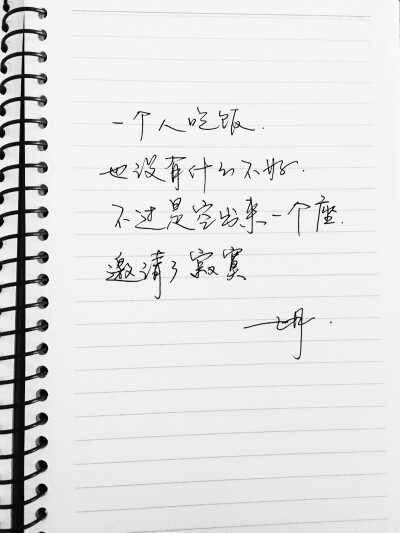 一个人吃饭.
也没有什么不好.
不过是空出来一个座.
邀请了寂寞